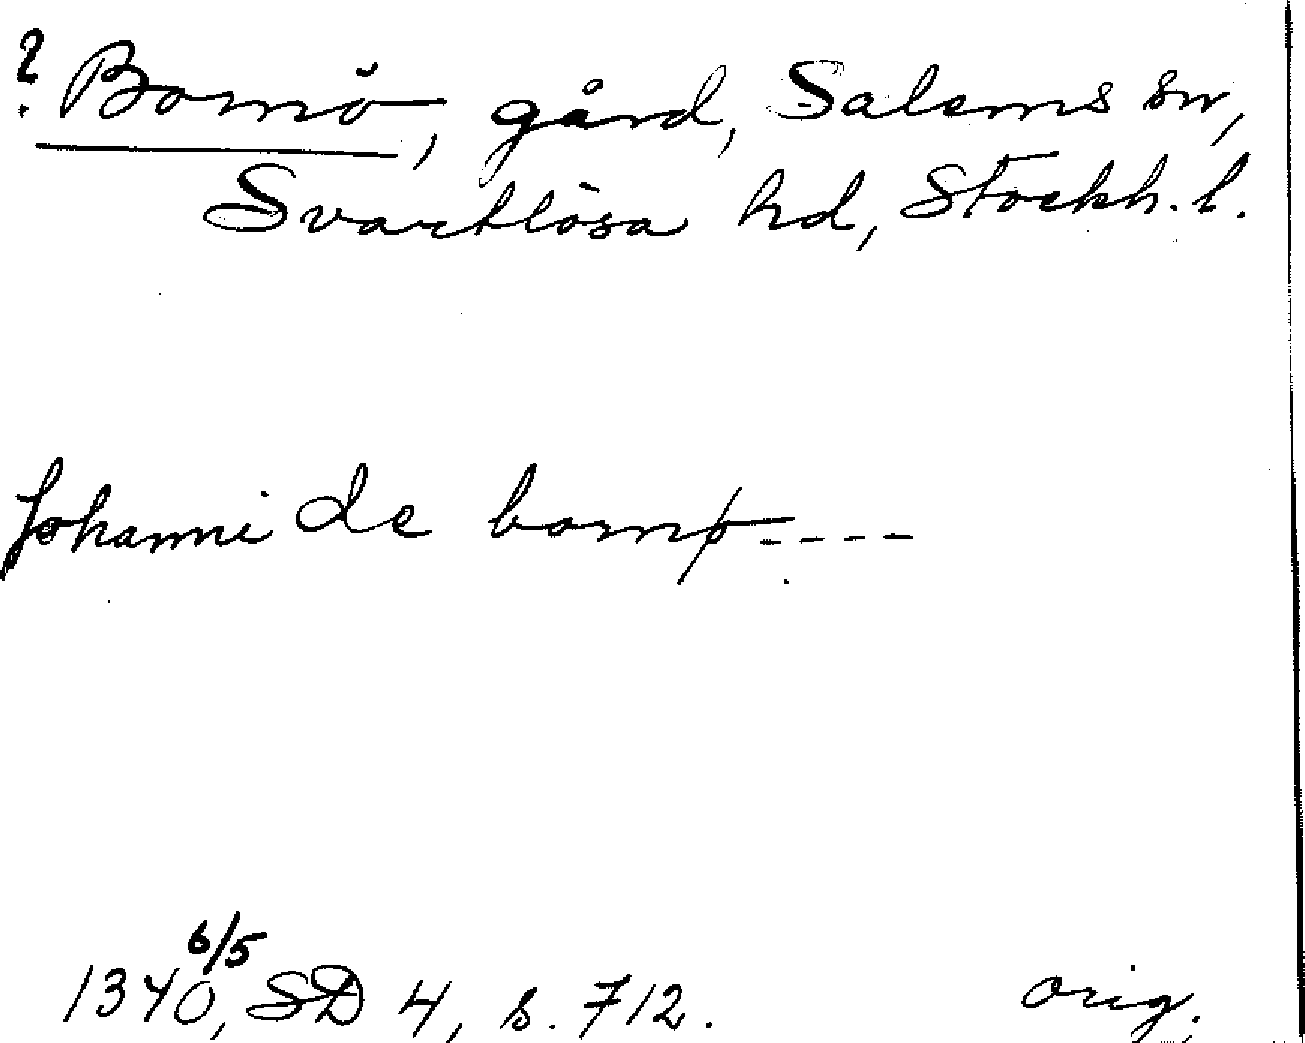 ? Bornö, gård, Salems sn,
Svartlösa hd, Stockh. l.
Johanni de bornø ----
1340 6/5, SD 4, s. 712. orig.